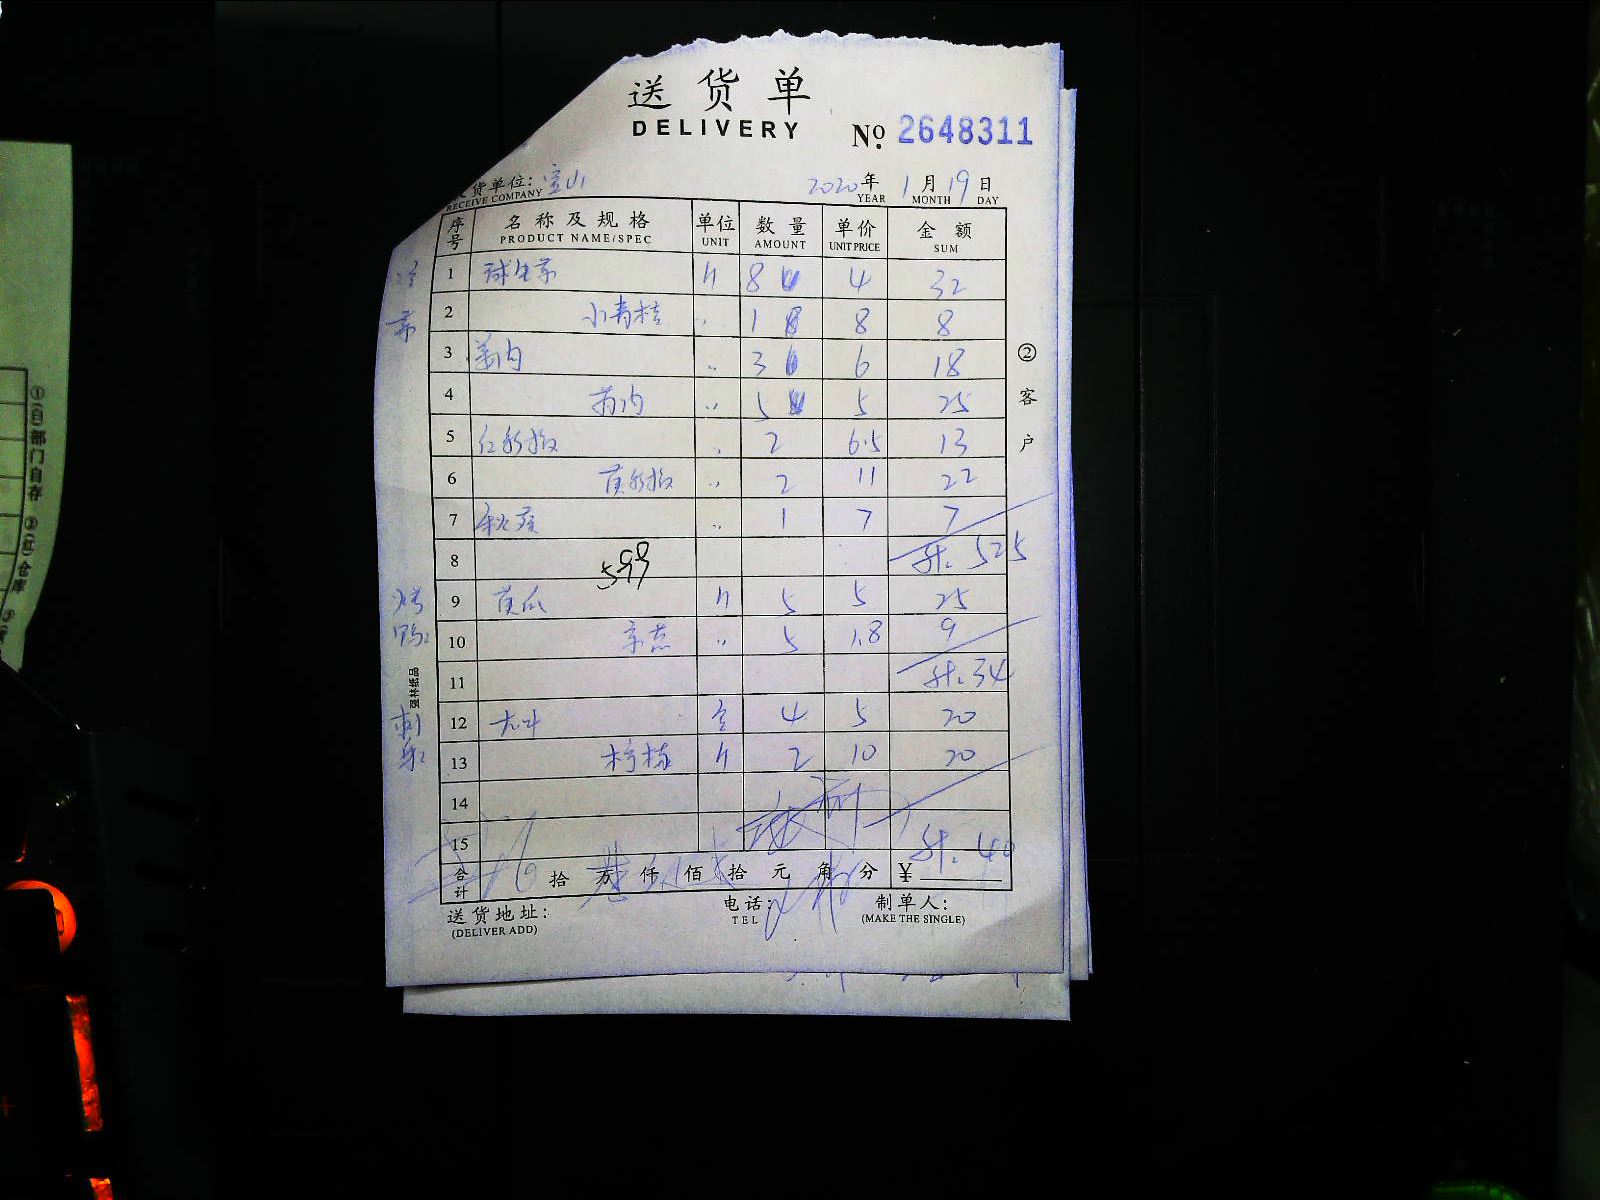 送货单
DELIVERY
№ 2648311
货单位: 宝山
RECEIVE COMPANY
2020年 1月 19日
YEAR MONTH DAY
序号 名称及规格 单位 数量 单价 金额
PRODUCT NAME/SPEC UNIT AMOUNT UNIT PRICE SUM
1 球生菜 斤 8 4 32
2 小青桔 〃 1 8 8
3 姜肉 〃 3 6 18
4 5 5 25
5 红彩椒 〃 2 6.5 13
6 黄彩椒 〃 2 11 22
7 秋葵 〃 1 7 7
8 599 计. 525
9 黄瓜 斤 5 5 25
10 京葱 〃 5 1.8 9
11 计. 34
12 4 5 20
13 柠檬 斤 2 10 20
14
15 计. 40
合计 拾 万 仟 佰 拾 元 角 分 ¥
送货地址:
(DELIVER ADD)
电话:
TEL
制单人:
(MAKE THE SINGLE)
②客户
烤鸭
强林纸品
刺身
①(白)部门自存 ②(红)仓库